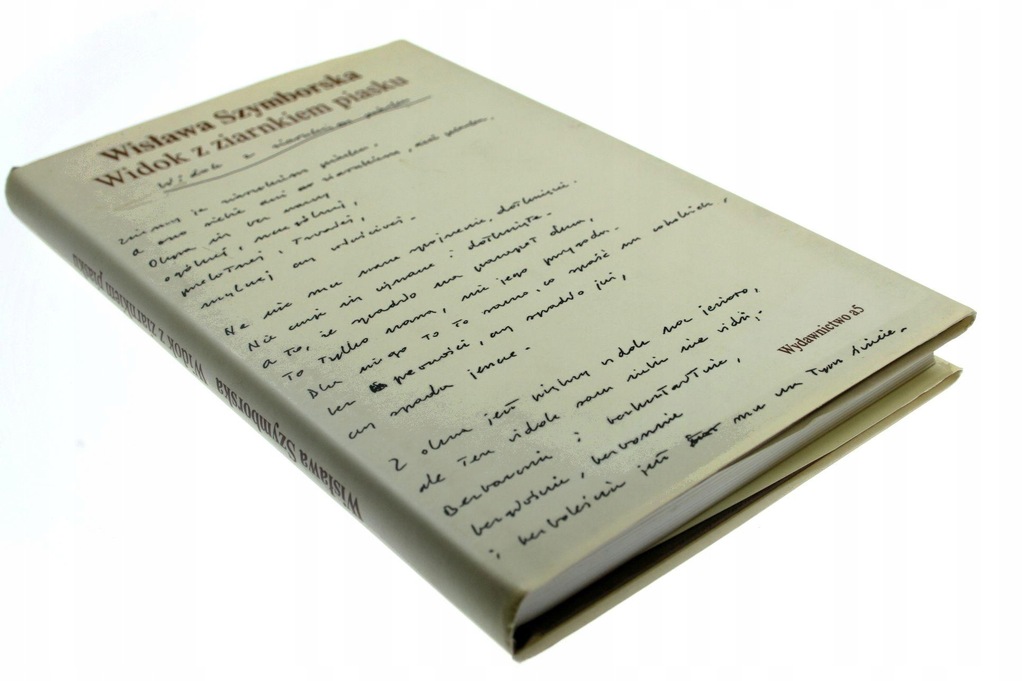 Wisława Szymborska
Widok z ziarnkiem piasku
Widok z ziarnkiem piasku
Zwiemy je ziarnkiem piasku.
A ono siebie ani ziarnkiem, ani piasku.
Obywa się bez nazwy
ogólnej, szczególnej,
przelotnej, trwałej,
mylnej czy właściwej.
Na nic mu nasze spojrzenie, dotknięcie.
Nie czuje się ujrzane i dotknięte.
A to, że spadło na parapet okna,
to tylko nasza, nie jego przygoda.
Dla niego to to samo, co spaść na cokolwiek,
bez pewności, czy spadło już,
czy spada jeszcze.
Z okna jest piękny widok na jezioro,
ale ten widok sam siebie nie widzi.
Bezbarwnie i bezkształtnie,
bezgłośnie, bezwonnie
i bezboleśnie jest mu na tym świecie.
Wydawnictwo a5
Wisława Szymborska Widok z ziarnkiem piasku